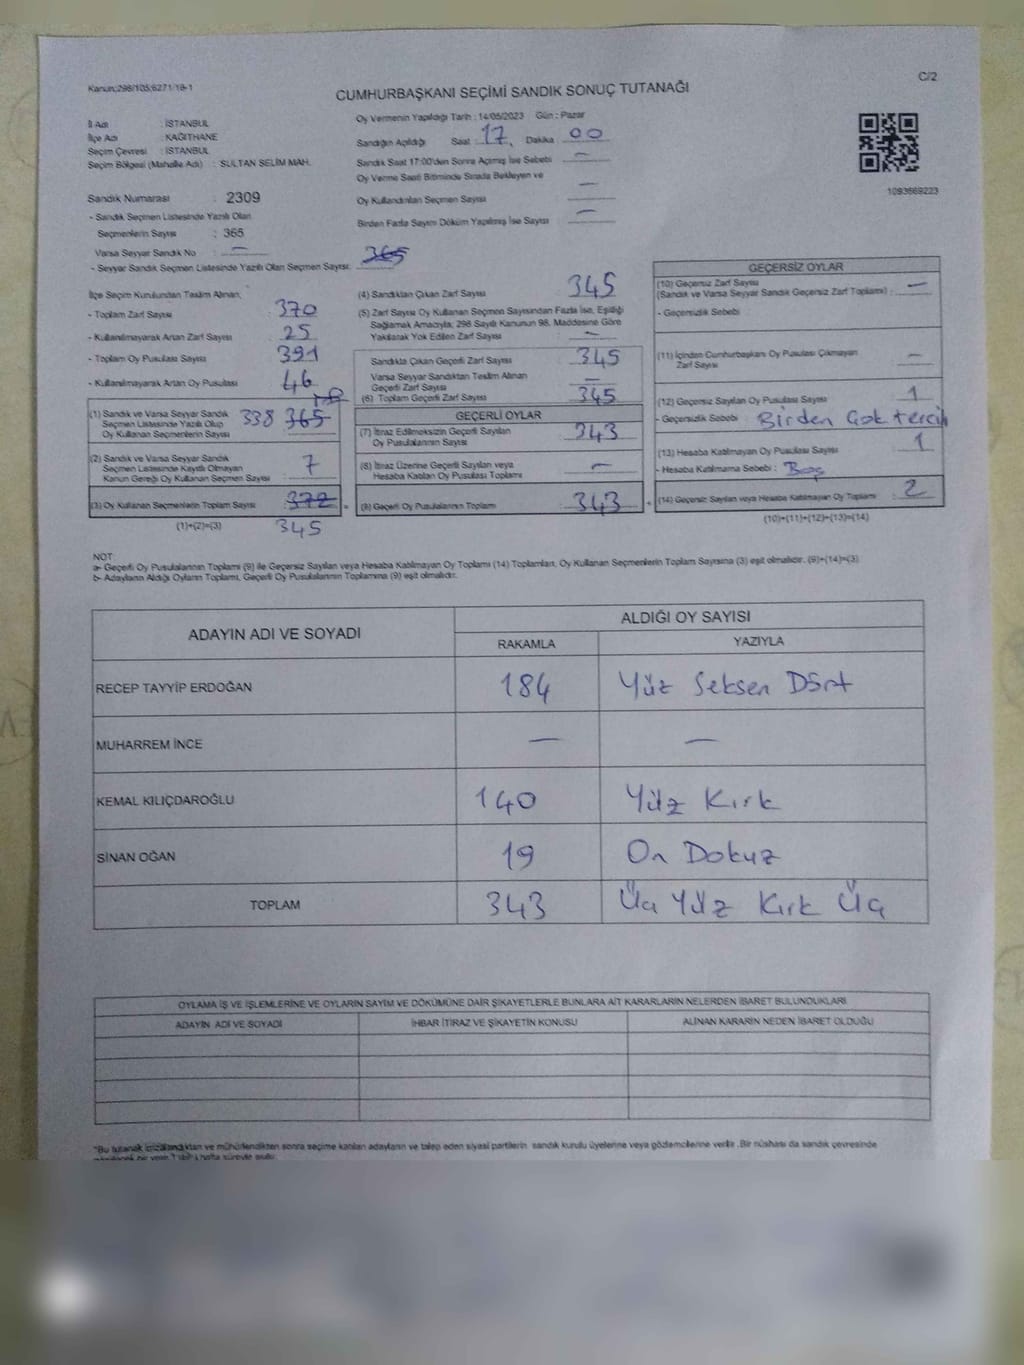 Kanun:298/105;6271/18-1
C/2
CUMHURBAŞKANI SEÇİMİ SANDIK SONUÇ TUTANAĞI
İl Adı : İSTANBUL
İlçe Adı : KAĞITHANE
Seçim Çevresi : İSTANBUL
Seçim Bölgesi (Mahalle Adı) : SULTAN SELİM MAH.
Oy Vermenin Yapıldığı Tarih : 14/05/2023 Gün : Pazar
Sandığın Açıldığı Saat : 17 Dakika 00
Sandık Saat 17:00'den Sonra Açılmış İse Sebebi —
Oy Verme Saati Bitiminde Sırada Bekleyen ve
Oy Kullandırılan Seçmen Sayısı —
Birden Fazla Sayım Döküm Yapılmış İse Sayısı —
1093669223
Sandık Numarası : 2309
- Sandık Seçmen Listesinde Yazılı Olan
Seçmenlerin Sayısı : 365
Varsa Seyyar Sandık No : —
- Seyyar Sandık Seçmen Listesinde Yazılı Olan Seçmen Sayısı: 365
İlçe Seçim Kurulundan Teslim Alınan;
- Toplam Zarf Sayısı : 370
- Kullanılmayarak Artan Zarf Sayısı : 25
- Toplam Oy Pusulası Sayısı : 391
- Kullanılmayarak Artan Oy Pusulası : 46
(1) Sandık ve Varsa Seyyar Sandık
Seçmen Listesinde Yazılı Olup
Oy Kullanan Seçmenlerin Sayısı 338 365
(2) Sandık ve Varsa Seyyar Sandık
Seçmen Listesinde Kayıtlı Olmayan
Kanun Gereği Oy Kullanan Seçmen Sayısı : 7
(3) Oy Kullanan Seçmenlerin Toplam Sayısı : 372
(1)+(2)=(3) 345
(4) Sandıktan Çıkan Zarf Sayısı : 345
(5) Zarf Sayısı Oy Kullanan Seçmen Sayısından Fazla İse, Eşitliği
Sağlamak Amacıyla; 298 Sayılı Kanunun 98. Maddesine Göre
Yakılarak Yok Edilen Zarf Sayısı : —
Sandıkta Çıkan Geçerli Zarf Sayısı : 345
Varsa Seyyar Sandıktan Teslim Alınan
Geçerli Zarf Sayısı : —
(6) Toplam Geçerli Zarf Sayısı : 345
GEÇERLİ OYLAR
(7) İtiraz Edilmeksizin Geçerli Sayılan
Oy Pusulalarının Sayısı : 343
(8) İtiraz Üzerine Geçerli Sayılan veya
Hesaba Katılan Oy Pusulası Toplamı : —
(9) Geçerli Oy Pusulalarının Toplamı : 343
GEÇERSİZ OYLAR
(10) Geçersiz Zarf Sayısı
(Sandık ve Varsa Seyyar Sandık Geçersiz Zarf Toplamı) : —
- Geçersizlik Sebebi :
(11) İçinden Cumhurbaşkanı Oy Pusulası Çıkmayan
Zarf Sayısı : —
(12) Geçersiz Sayılan Oy Pusulası Sayısı : 1
- Geçersizlik Sebebi : Birden Çok tercih
(13) Hesaba Katılmayan Oy Pusulası Sayısı : 1
- Hesaba Katılmama Sebebi : Boş
(14) Geçersiz Sayılan veya Hesaba Katılmayan Oy Toplamı : 2
(10)+(11)+(12)+(13)=(14)
NOT:
a- Geçerli Oy Pusulalarının Toplamı (9) ile Geçersiz Sayılan veya Hesaba Katılmayan Oy Toplamı (14) Toplamları, Oy Kullanan Seçmenlerin Toplam Sayısına (3) eşit olmalıdır. (9)+(14)=(3)
b- Adayların Aldığı Oyların Toplamı, Geçerli Oy Pusulalarının Toplamına (9) eşit olmalıdır.
ADAYIN ADI VE SOYADI
ALDIĞI OY SAYISI
RAKAMLA YAZIYLA
RECEP TAYYİP ERDOĞAN 184 Yüz Seksen Dört
MUHARREM İNCE — —
KEMAL KILIÇDAROĞLU 140 Yüz Kırk
SİNAN OĞAN 19 On Dokuz
TOPLAM 343 Üç Yüz Kırk Üç
OYLAMA İŞ VE İŞLEMLERİNE VE OYLARIN SAYIM VE DÖKÜMÜNE DAİR ŞİKAYETLERLE BUNLARA AİT KARARLARIN NELERDEN İBARET BULUNDUKLARI
ADAYIN ADI VE SOYADI İHBAR İTİRAZ VE ŞİKAYETİN KONUSU ALINAN KARARIN NEDEN İBARET OLDUĞU
*Bu tutanak imzalandıktan ve mühürlendikten sonra seçime katılan adayların ve talep eden siyasi partilerin sandık kurulu üyelerine veya gözlemcilerine verilir. Bir nüshası da sandık çevresinde